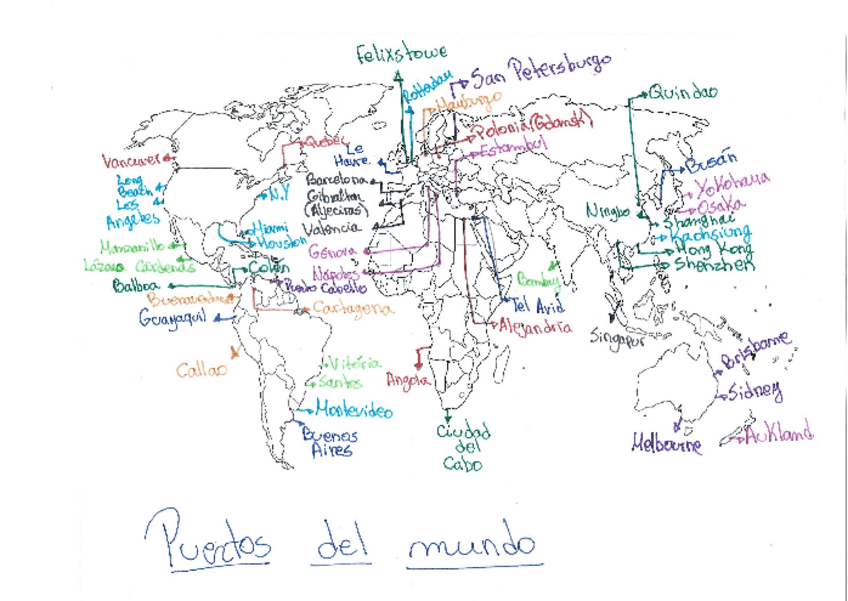 Felixstowe
Rotterdam
San Petersburgo
Hamburgo
Quindao
Polonia (Gdansk)
Estambul
Quebec
Le
Havre
Vancuver
Barcelona
Gibraltar
(Algeciras)
Valencia
Long
Beach
Los
Angeles
N.Y
Busán
Yokohama
Osaka
Ningbo
Shanghai
Kaohsiung
Hong Kong
Shenzhen
Miami
Houston
Manzanillo
Lázaro Cárdenas
Génova
Nápoles
Colón
Balboa
Puerto Cabello
Bombay
Buenaventura
Cartagena
Tel Avid
Guayaquil
Alejandría
Singapur
Callao
Vitória
Santos
Angola
Brisbame
Sidney
Montevideo
Buenos
Aires
Ciudad
del
Cabo
Melbourne
Aukland
Puertos del mundo